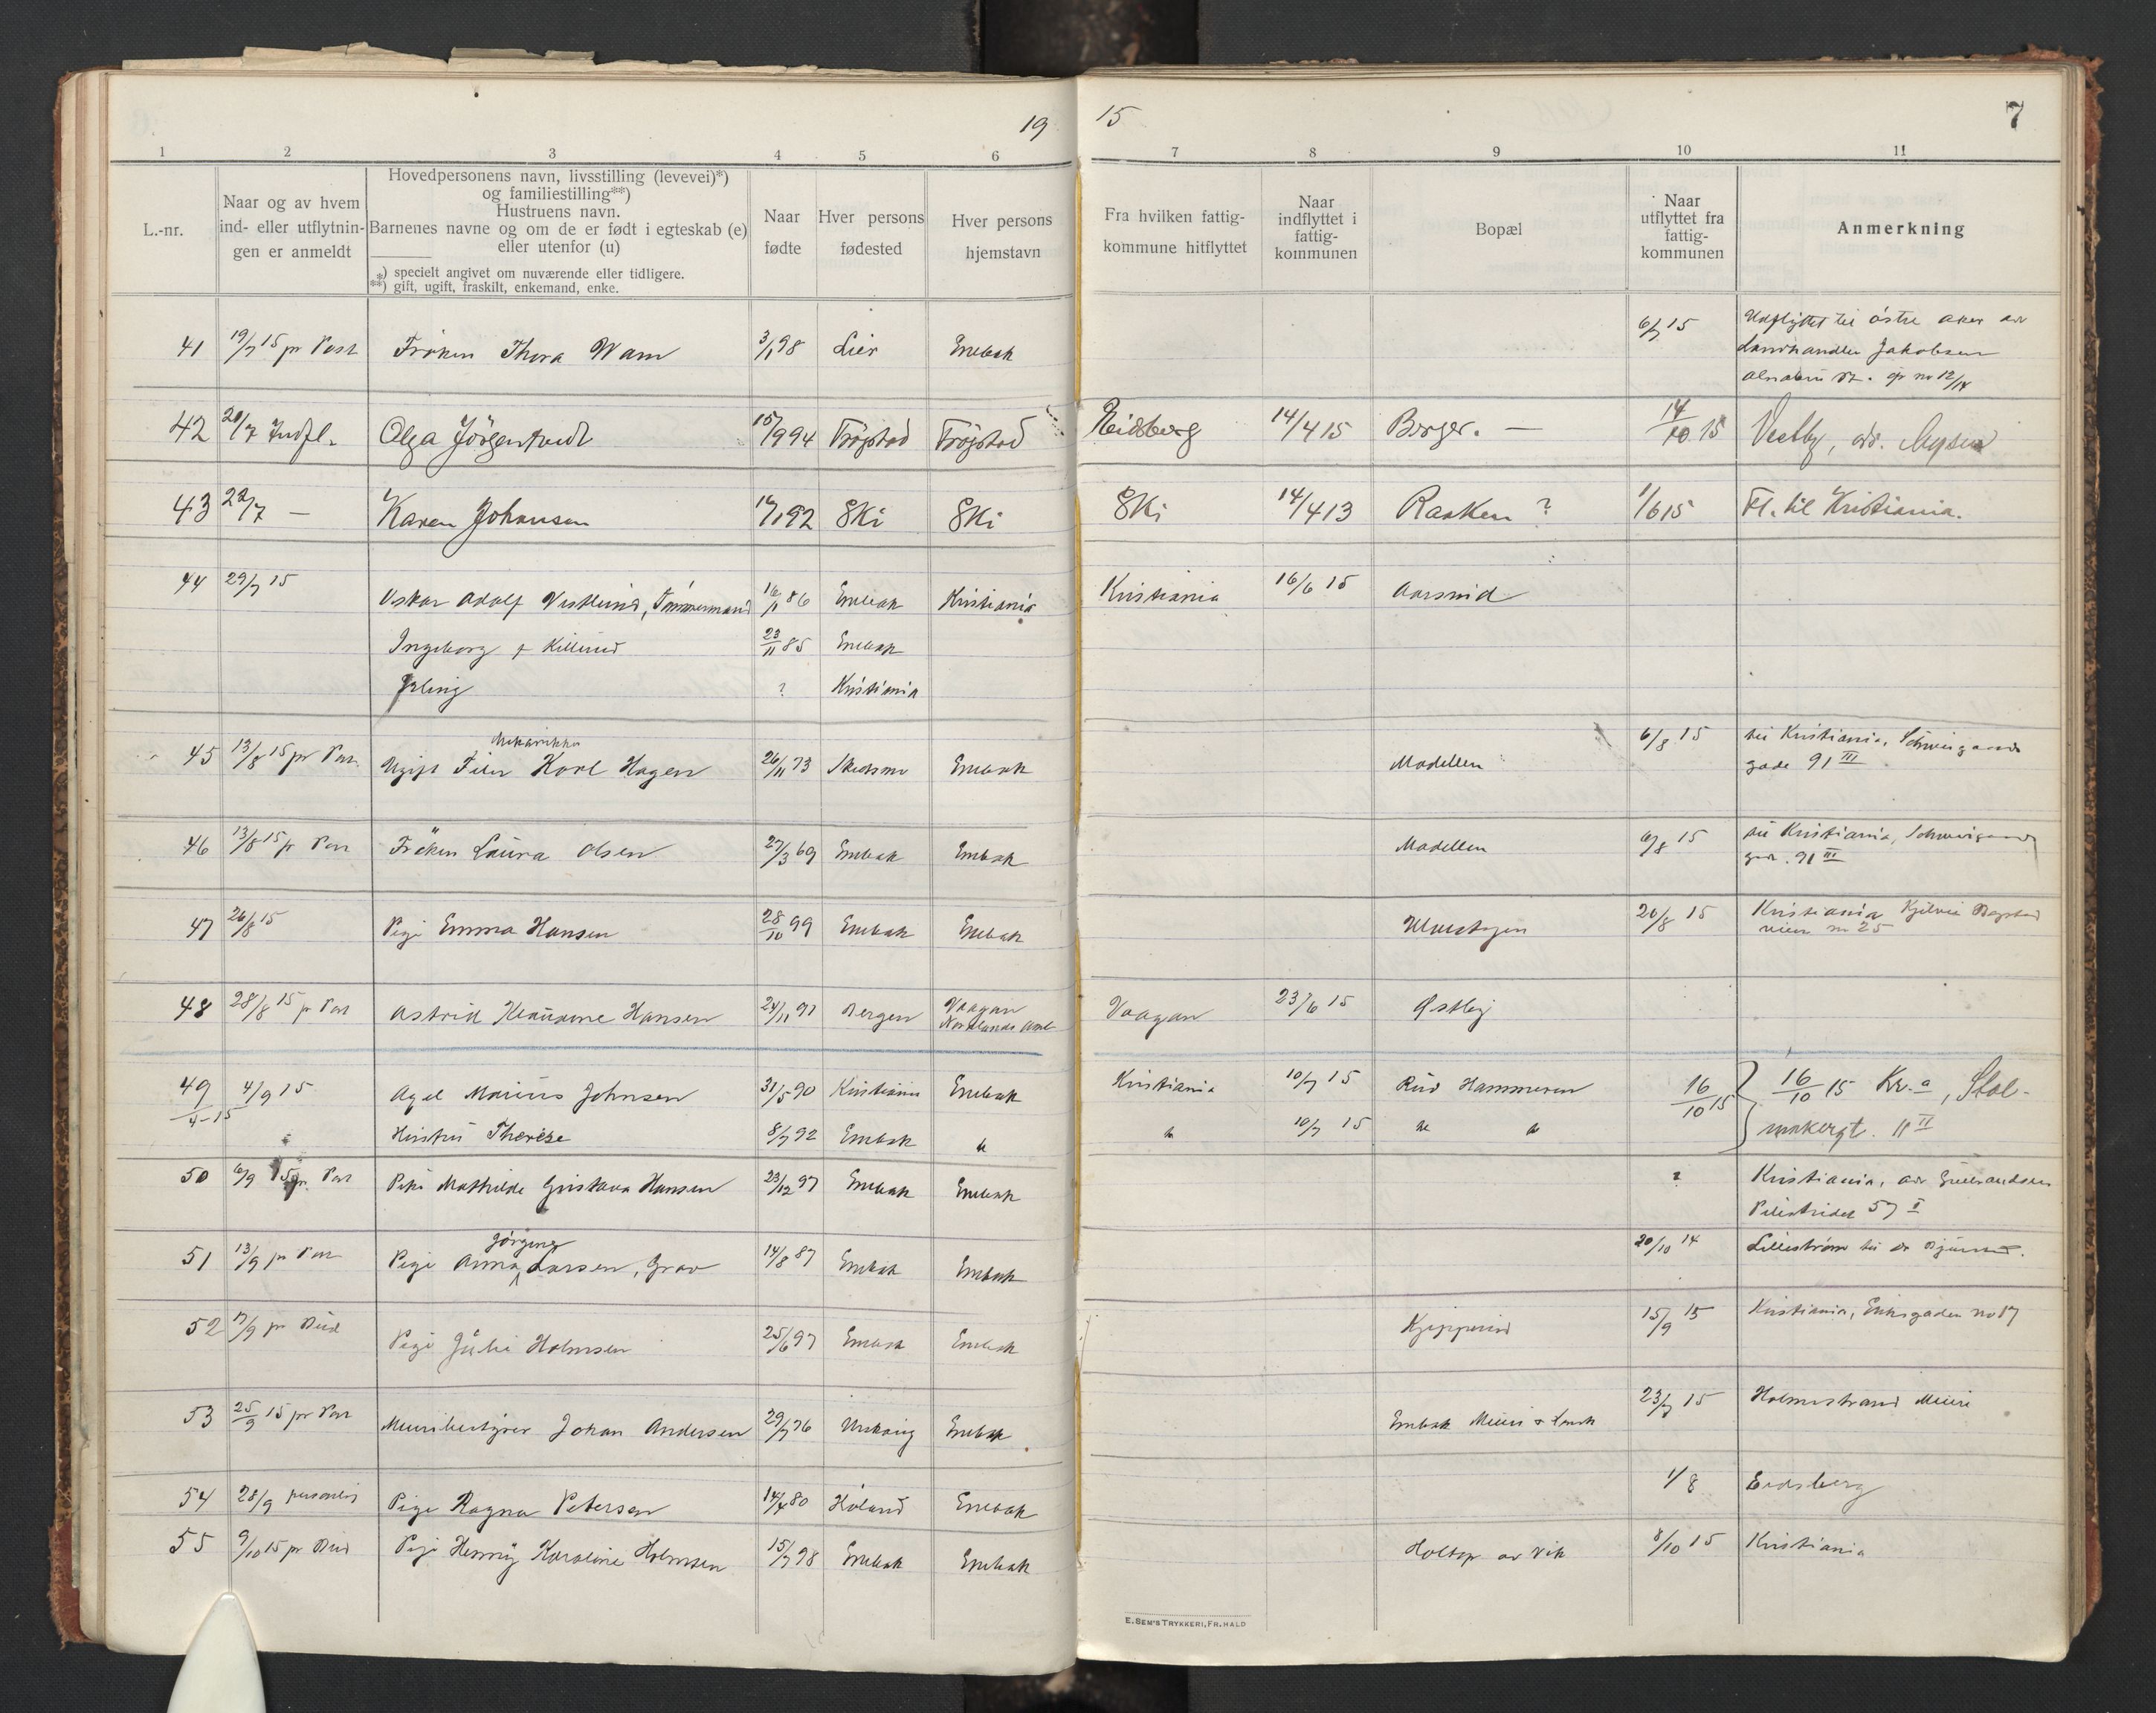 19 15 7
1 2 3 4 5 6 7 8 9 10 11
L.-nr.
Naar og av hvem
ind- eller utflytnin-
gen er anmeldt
Hovedpersonens navn, livsstilling (levevei)*)
og familiestilling**)
Hustruens navn.
Barnenes navne og om de er født i egteskab (e)
eller utenfor (u)
*) specielt angivet om nuværende eller tidligere.
**) gift, ugift, fraskilt, enkemand, enke.
Naar
fødte
Hver persons
fødested
Hver persons
hjemstavn
Fra hvilken fattig-
kommune hitflyttet
Naar
indflyttet i
fattig-
kommunen
Bopæl
Naar
utflyttet fra
fattig-
kommunen
Anmerkning
41 19/7 15 pr Post Frøken Thora Wam 3/1 98 Lier Enebak 6/7 15 Udflyttet til østre aker adr
Landhandler Jakobsen
Alnabru St.
42 20/7 Indfl. Olga Jörgentvedt 15/9 94 Trøgstad Trøgstad Eidsberg 14/4 15 Borger. — 14/10 15 Vestby, adr. Mysen
43 22/7 — Karen Johansen 92 Ski Ski Ski 14/4 13 Raaken ? 1/6 15 Fl. til Kristiania.
44 29/7 15 Oskar Adolf Vestlund, Tømmermand 16/11 86 Enebak Kristiania Kristiania 16/6 15 Aarsrud
Ingeborg f Killerud 23/11 85 Enebak
Erling ? Kristiania
Mekaniker
45 13/8 15 pr Post Ugift Karl Hagen 26/11 73 Skedsmo Enebak Modellen 6/8 15 til Kristiania, Schweigaards
gade 91 III
46 13/8 15 pr Post Frøken Laura Olsen 27/3 69 Enebak Enebak Modellen 6/8 15 til Kristiania, Schweigaards
gade. 91 III
47 26/8 15 Pige Emma Hansen 28/10 99 Enebak Enebak 20/8 15 Kristiania
veien no 25
48 28/8 15 pr Post Astrid Hansen 24/11 97 Bergen Vaagan
Nordlands Amt Vaagan 23/6 15 Østby
49 4/9 15 Axel Marius Johnsen 31/5 90 Kristiania Enebak Kristiania 10/7 15 Rud Hammeren 16/10 15 16/10 15 Kr.a, Stol-
Hustru Therese 8/7 92 Enebak " " 10/7 15 " " makergt. 11 II
50 6/9 15 pr. Post Pike Mathilde Gustava Hansen 23/12 97 Enebak Enebak ? Kristiania, adr Gulbrandsen
Pilestrædet 57 I
Jørgine
51 13/9 pr Post Pige Anna Larsen, Grav 14/8 87 Enebak Enebak 20/10 14 Lilleström
52 17/9 pr Bud Pige Julie Holmsen 25/6 97 Enebak Enebak Kjepperud 15/9 15 Kristiania, Eriksgaden no 17
53 25/9 15 pr Post Meieribestyrer Johan Andersen 29/7 76 Urskoug Enebak Enebak Meieri 23/7 15 Holmestrand Meieri
54 28/9 personlig Pige Ragna Petersen 14/4 80 Høland Enebak 1/8 Eidsberg
55 9/10 15 pr Bud Pige Henny Karoline Holmsen 15/7 98 Enebak Enebak Holtop av Vik 8/10 15 Kristiania
E. SEM'S TRYKKERI, FR.HALD